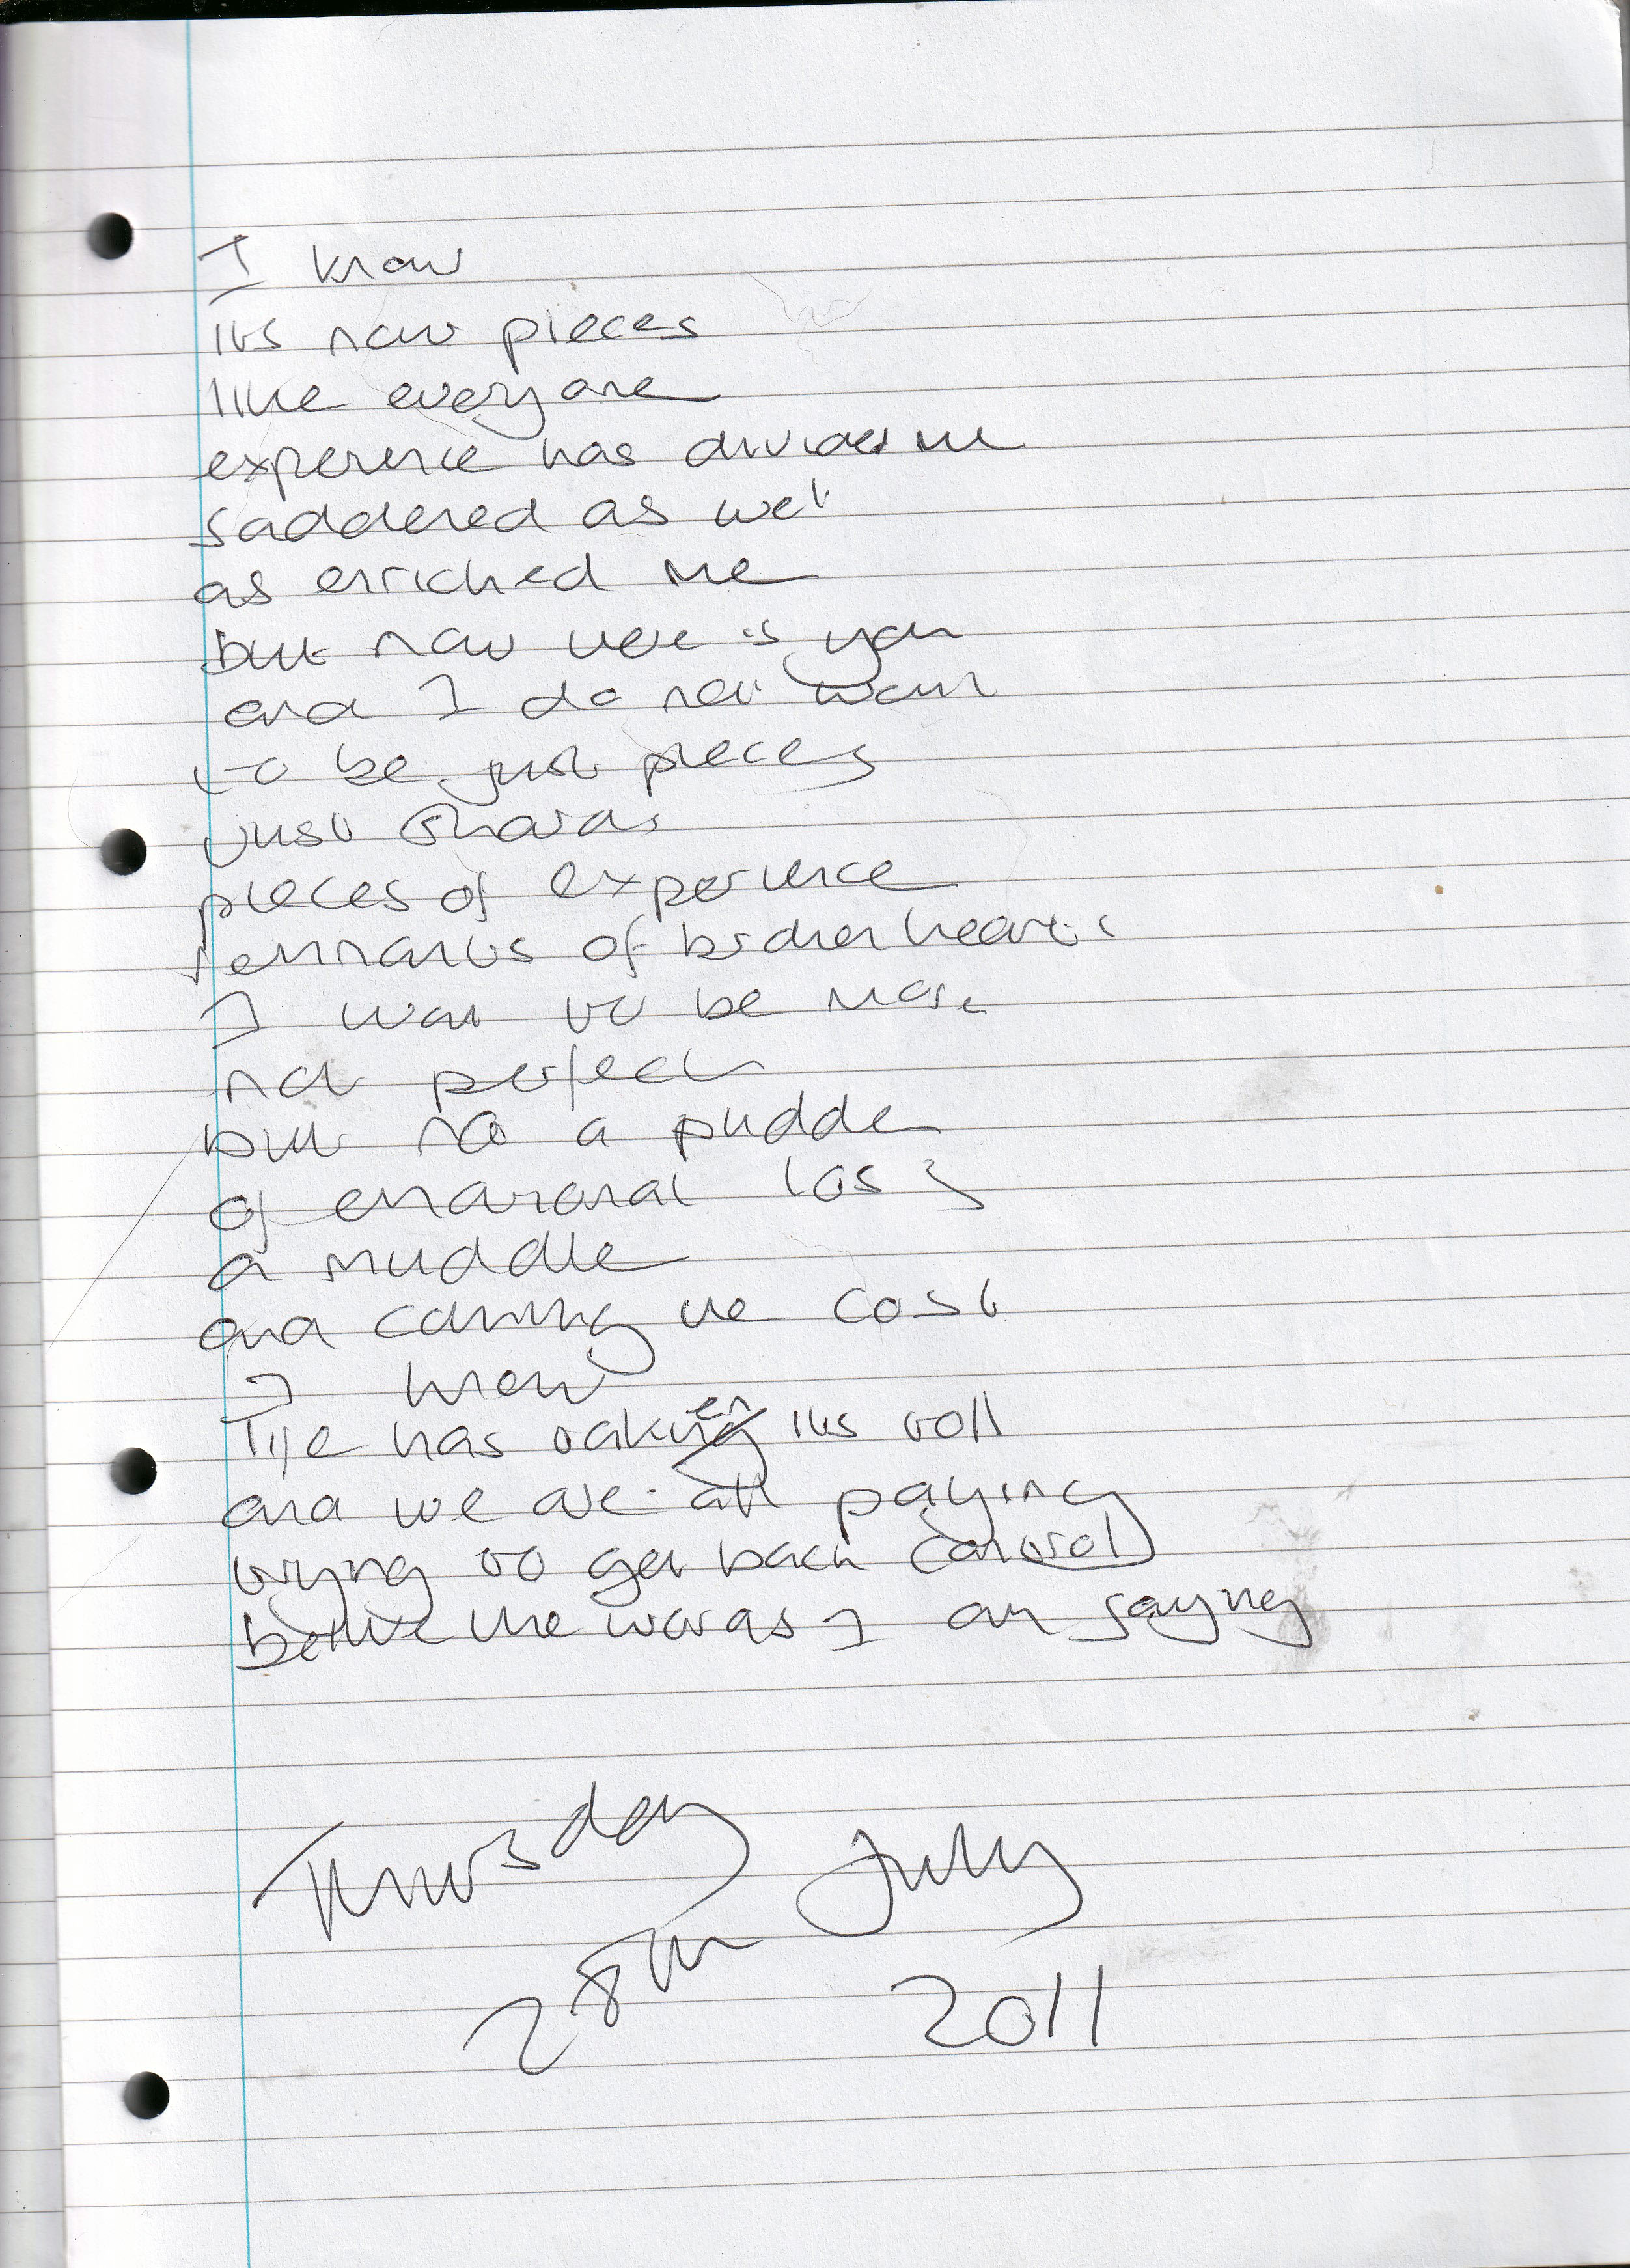 I know
its now pieces
like everyone
experence has divided me
saddened as well
as enriched me
but now there is you
and I do not want
to be just pieces
just shards
pieces of experience
remnants of broken hearts
I want to be more
not perfect
but not a puddle
of emotional loss
a muddle
and carrying the cost
I know
life has taken its toll
and we are all paying
trying to get back control
believe the words I am saying
Thursday
28th July
2011